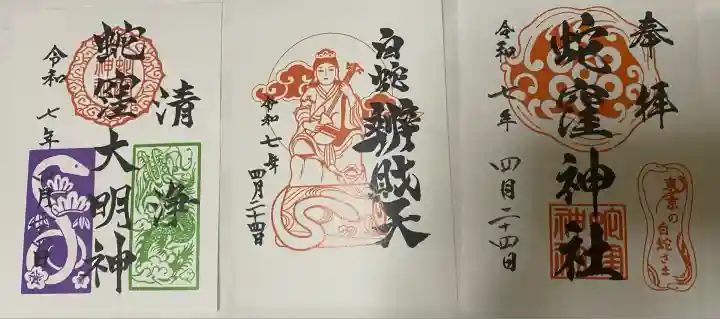 奉拝
蛇窪神社
令和七年
四月二十四日
東京の
白蛇さま
白蛇辨財天
令和七年
四月二十四日
清浄
蛇窪大明神
令和七年